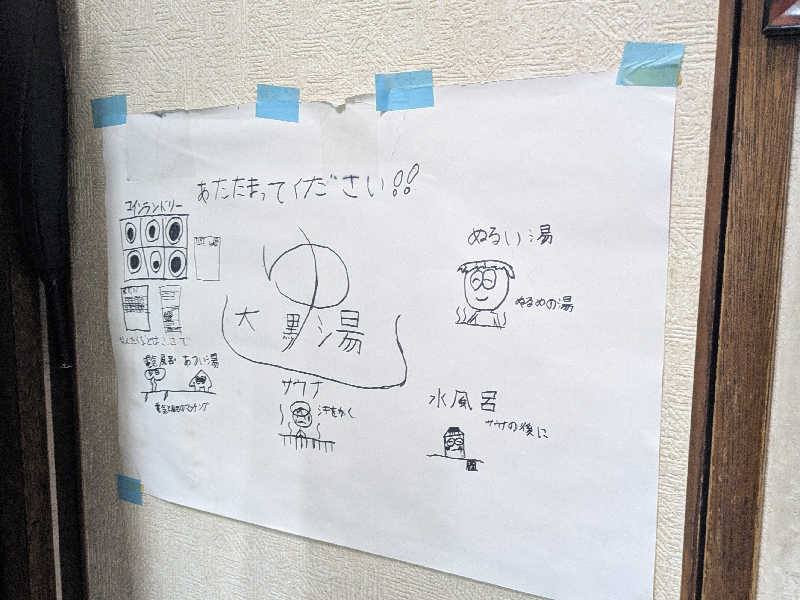 あたたまってください!!
コインランドリー
ゆ
大黒湯
ぬるい湯
ぬるめの湯
電気風呂 あつい湯
サウナ
汗をかく
水風呂
サウナの後に